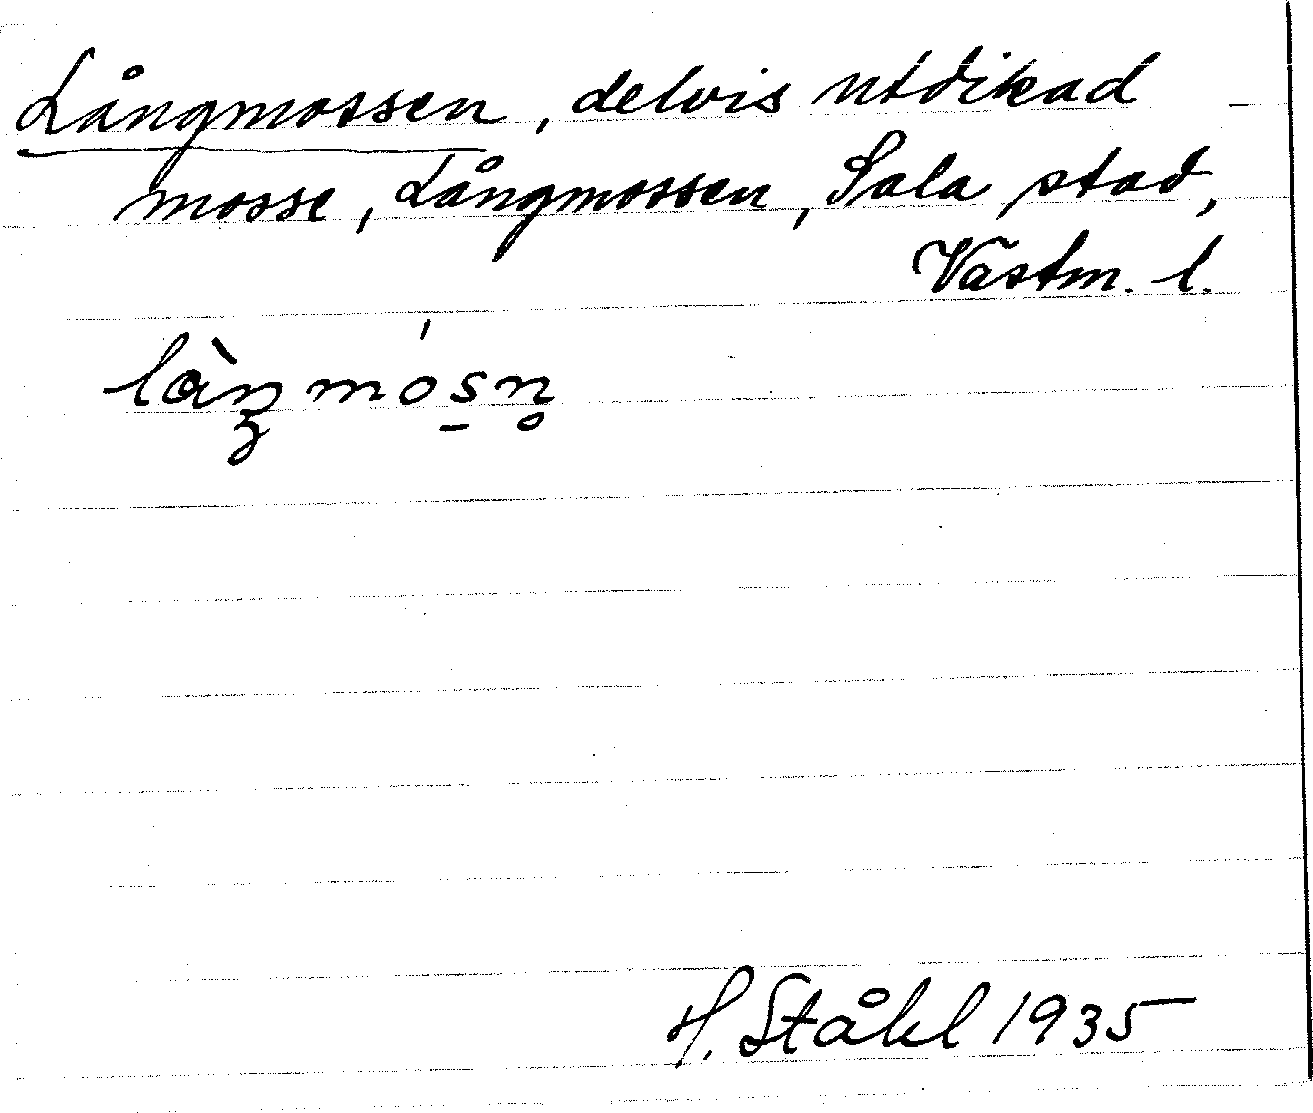 Långmossen, delvis utdikad
mosse, Långmossen, Sala stad,
Västm. l.
làŋmósn̥
H. Ståhl 1935